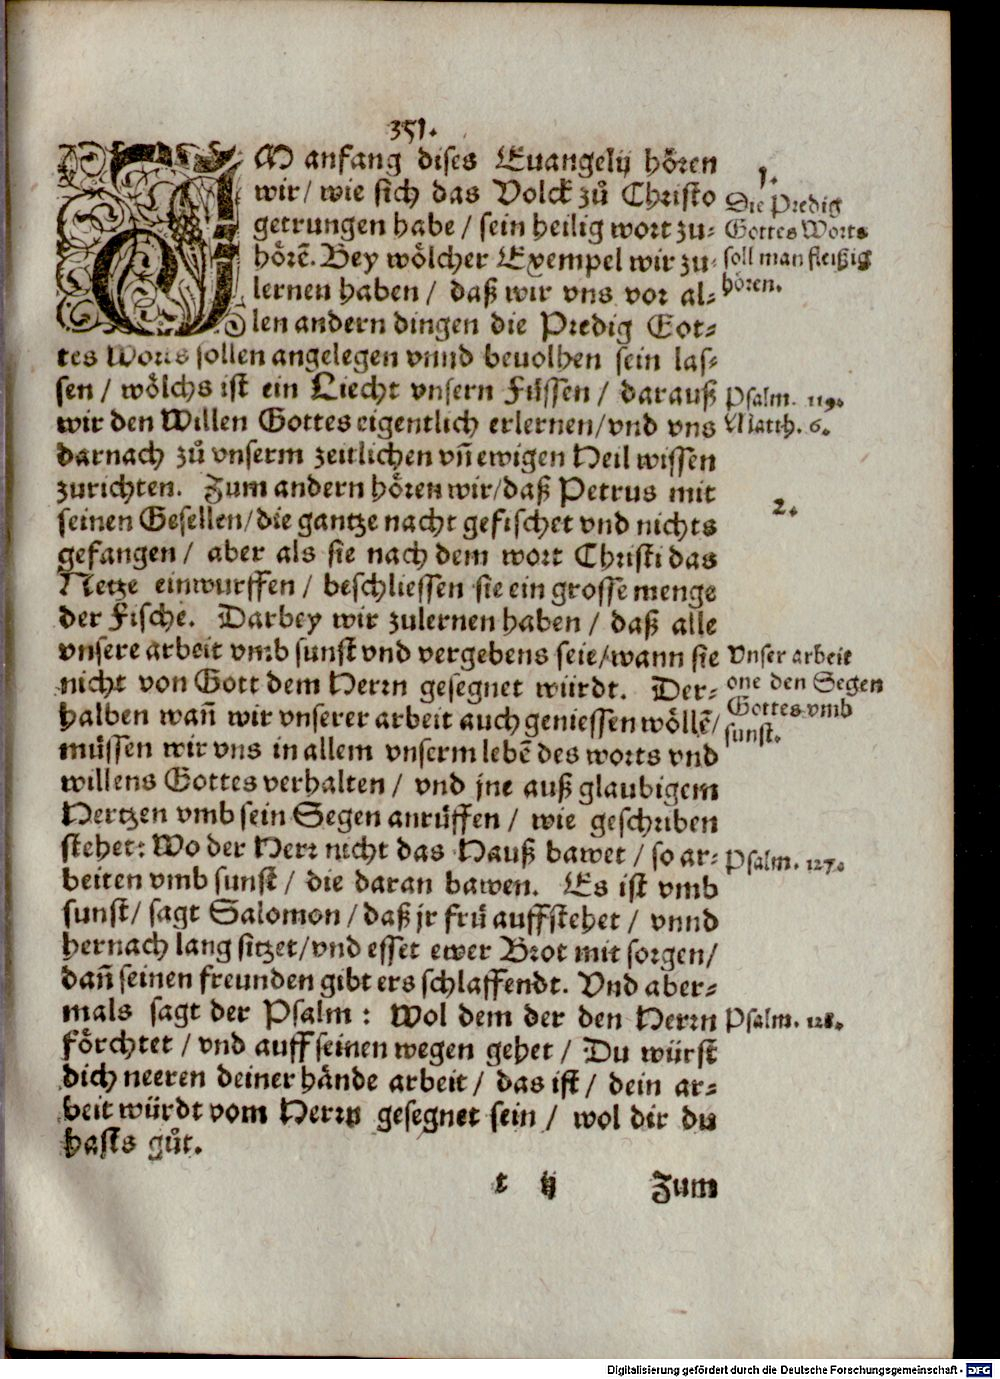 351.
IM anfang dises Euangelij hören
wir / wie sich das Volck zů Christo
getrungen habe / sein heilig wort zu⸗
hörẽ. Bey wölcher Exempel wir zu⸗
lernen haben / daß wir vns vor al⸗
len andern dingen die Predig Got⸗
tes Worts sollen angelegen vnnd beuolhen sein las⸗
sen / wölchs ist ein Liecht vnsern Füssen / darauß
wir den Willen Gottes eigentlich erlernen/vnd vns
darnach zů vnserm zeitlichen vñ ewigen Heil wissen
zurichten. Zum andern hören wir/daß Petrus mit
seinen Gesellen/die gantze nacht gefischet vnd nichts
gefangen / aber als sie nach dem wort Christi das
Netze einwurffen / beschliessen sie ein grosse menge
der Fische. Darbey wir zulernen haben / daß alle
vnsere arbeit vmb sunst vnd vergebens seie/wann sie
nicht von Gott dem Herrn gesegnet würdt. Der⸗
halben wañ wir vnserer arbeit auch geniessen wöllẽ/
müssen wir vns in allem vnserm lebẽ des worts vnd
willens Gottes verhalten / vnd jne auß glaubigem
Hertzen vmb sein Segen anrüffen / wie geschriben
stehet: Wo der Herr nicht das Hauß bawet / so ar⸗
beiten vmb sunst / die daran bawen. Es ist vmb
sunst/ sagt Salomon / daß jr frü auffstehet / vnnd
hernach lang sitzet/vnd esset ewer Brot mit sorgen/
dañ seinen freunden gibt ers schlaffendt. Vnd aber⸗
mals sagt der Psalm : Wol dem der den Herrn
förchtet / vnd auff seinen wegen gehet / Du würst
dich neeren deiner hände arbeit / das ist / dein ar⸗
beit würdt vom Herrn gesegnet sein / wol dir du
hasts gůt.
t ij Zum
1.
Die Predig
Gottes Worts
soll man fleißig
hören.
Psalm. 119.
Matth. 6.
2.
Vnser arbeit
one den Segen
Gottes vmb
sunst.
Psalm. 127.
Psalm. 128.
Digitalisierung gefördert durch die Deutsche Forschungsgemeinschaft - DFG